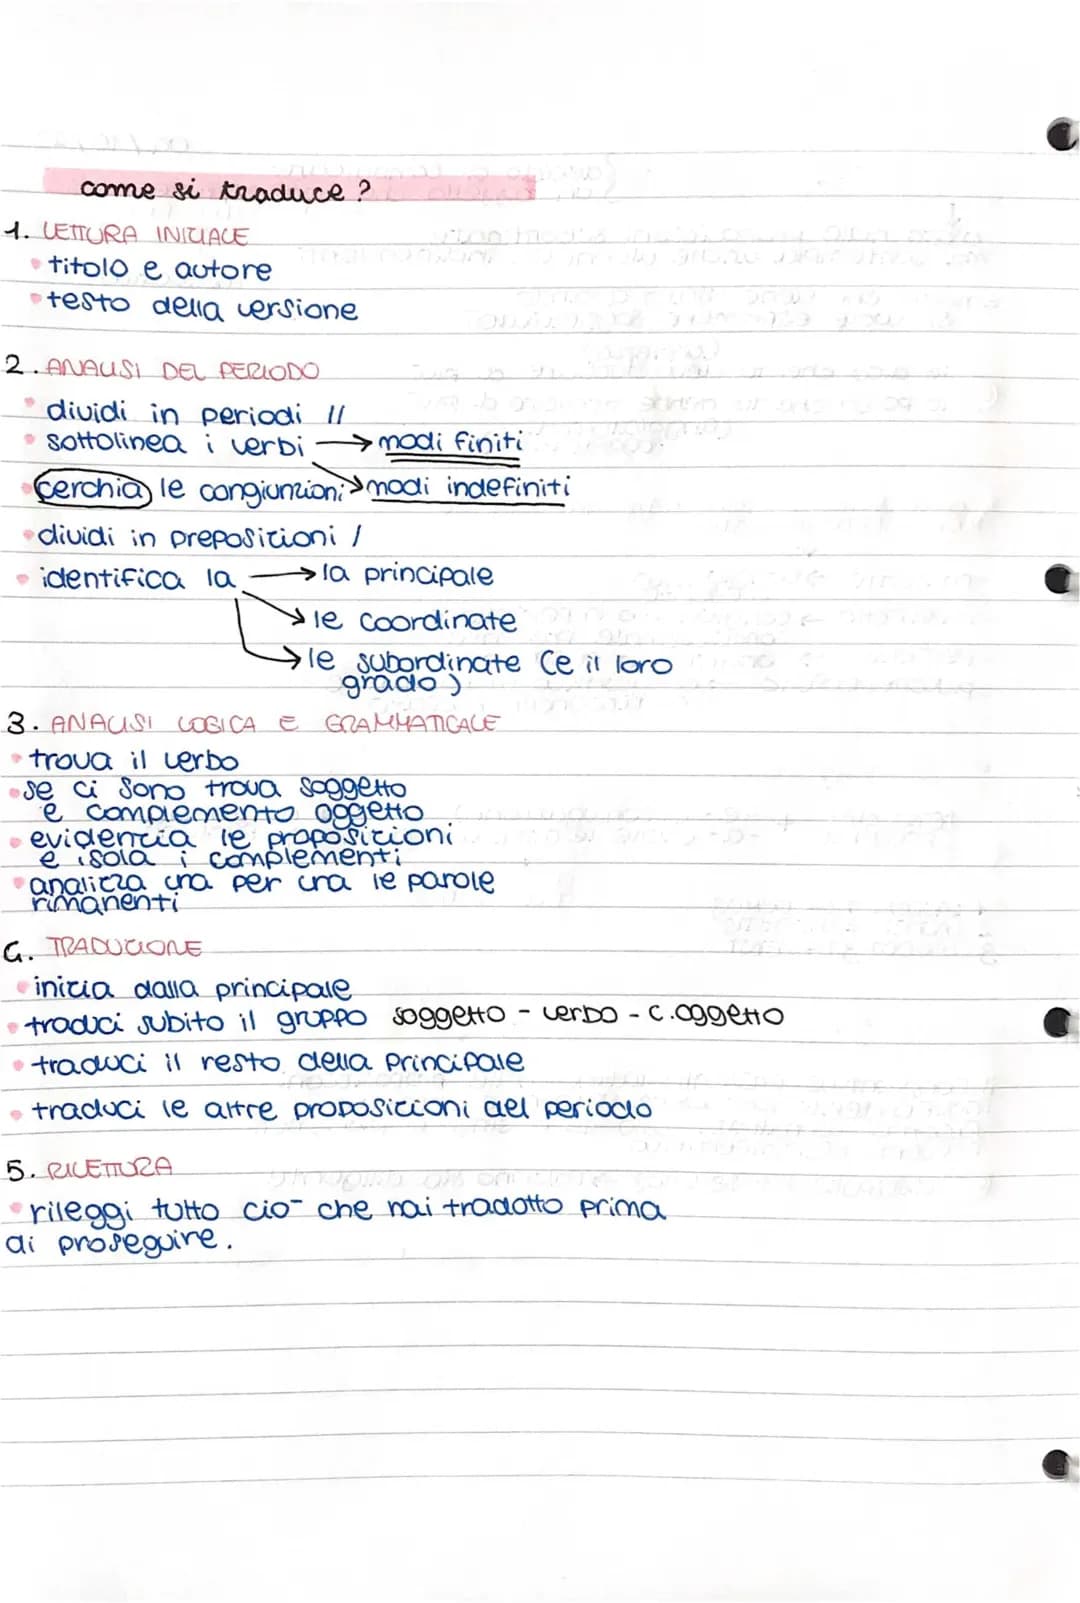 come si traduce ?
1. LETTURA INIZIALE
• titolo e autore
• testo della versione
2. ANALISI DEL PERIODO
• dividi in periodi //
• sottolinea i verbi → modi finiti
• cerchia le congiunzioni → modi indefiniti
• dividi in preposizioni /
• identifica la → la principale
→ le coordinate
→ le subordinate (e il loro
grado)
3. ANALISI LOGICA E GRAMMATICALE
• trova il verbo
• se ci sono trova soggetto
e complemento oggetto
• evidenzia le proposizioni
e isola i complementi
• analizza una per una le parole
rimanenti
4. TRADUZIONE
• inizia dalla principale
• traduci subito il gruppo soggetto - verbo - c.oggetto
• traduci il resto della principale
• traduci le altre proposizioni del periodo
5. RILETTURA
• rileggi tutto ciò che hai tradotto prima
di proseguire.